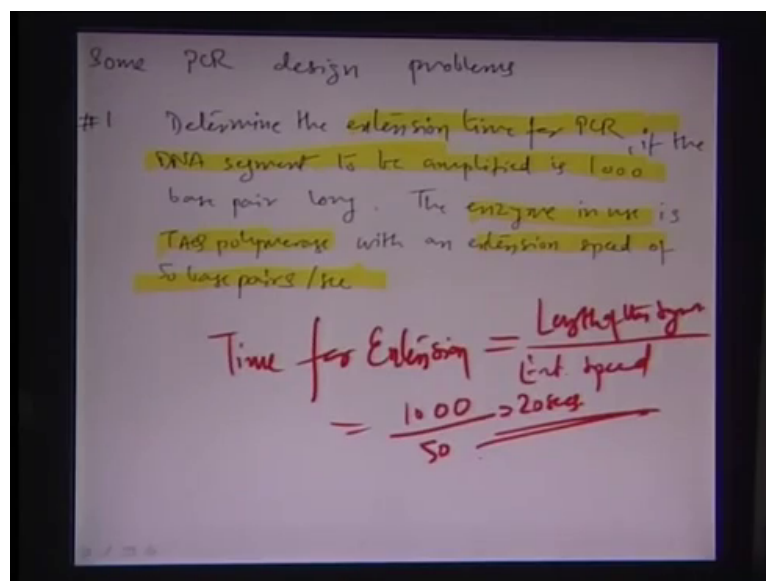 Some PCR design problems
#1 Determine the extension time for PCR, if the
DNA segment to be amplified is 1000
base pair long. The enzyme in use is
TAQ polymerase with an extension speed of
50 base pairs/sec
Time for Extension = Length of the
speed
= 1000 = 20 secs
50